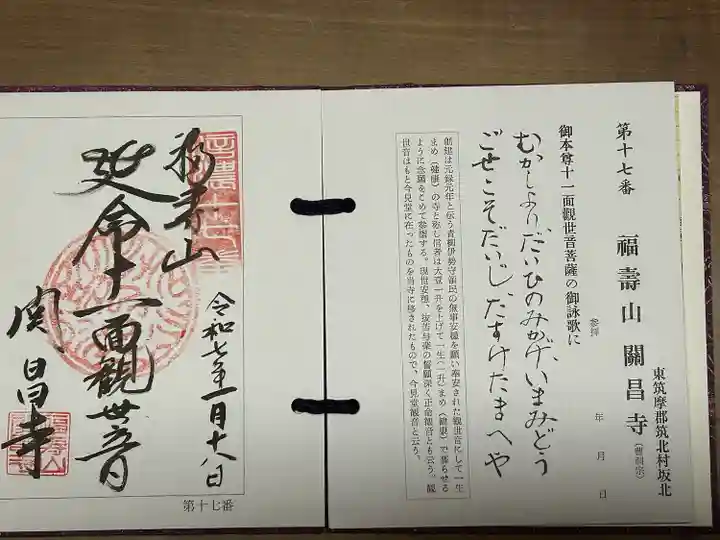 東筑摩郡筑北村坂北
第十七番 福壽山 關昌寺
(曹洞宗)
参拝 年 月 日
御本尊十一面觀世音菩薩の御詠歌に
むかしより だいひのみかげ いまみどう
ごせこそだいじ たすけたまへや
創建は元禄元年と伝う青柳伊勢守領民の無事安穏を願い奉安された観世音にして一生
まめ(健康)の寺と称し信者は大豆一升を上げて一生(一升)まめ(健康)で暮らせる
ように念願をこめて参詣する。現世安穏、抜苦与楽の誓願深く正命観音とも云う。観
世音はもと今見堂に在ったものを当寺に移されたもので、今見堂観音と云う。
令和七年一月十八日
福寿山
延命十一面観世音
関昌寺
第十七番